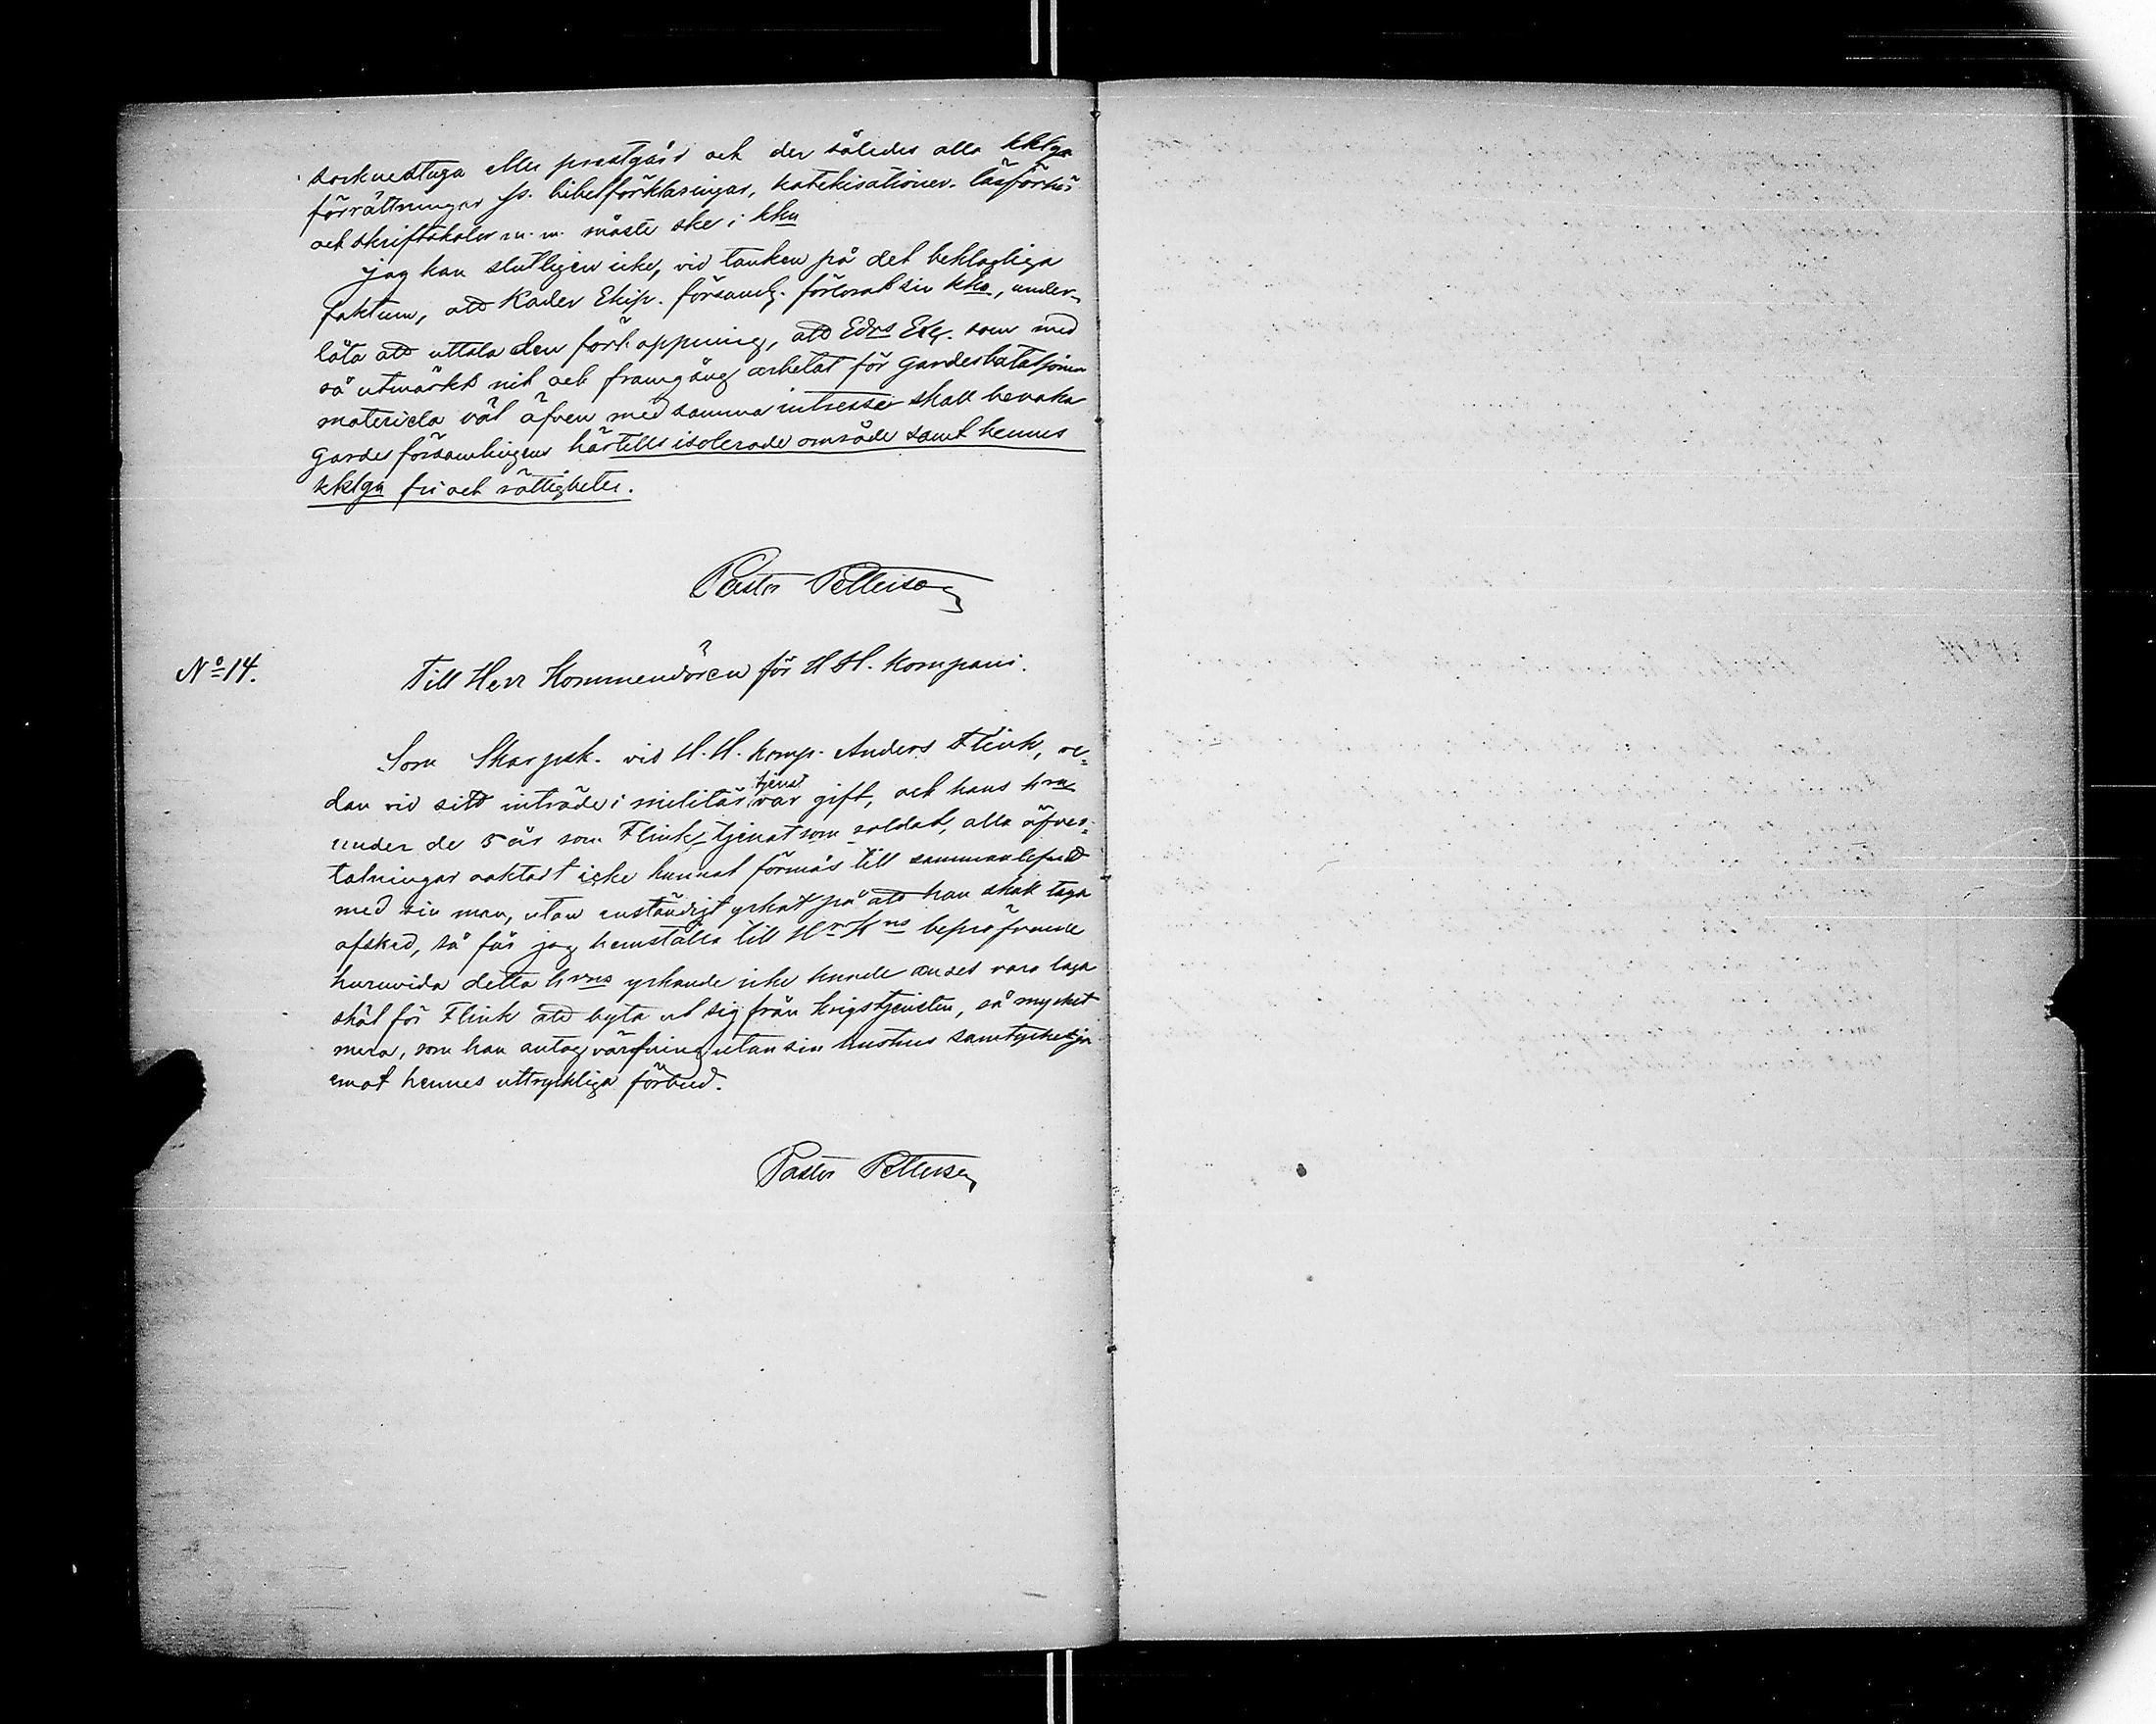 socknestuga eller prestgård och der således alla kklga
förrättningar ss. bibelförklaringar, katekisationer. läsförhör
och skriftskolor m. m. måste ske i kkn
Jag kan slutligen icke, vid tanken på det beklagliga
faktum, att Kader Ekip. församl. förlorat sin kka, under-
låta att uttala den förhoppning, att Edrs Exc. som med
så utmärkt nit och framgång arbetat för Gardesbataljonen
materiela väl äfven med samma intresse skall bevaka
Gardesförsamlingens härtills isolerade område samt hennes
kklga fri och rättigheter.
Pastor Petterson
No 14.
Till Herr Kommendören för H. H. Kompani.
Som Skarpsk. vid H. H. Komp. Anders Flink, re-
dan vid sitt inträde i militärtjenst var gift, och hans hru
under de 5 år som Flink tjenat som soldat, alla öfver-
talningar oaktadt icke kunnat förmås till sammanlefnad
med sin man, utan enständigt yrkat på att han skall taga
afsked, så får jag hemställa till Hr Kns bepröfvande
huruvida detta hrus yrkande icke kunde anses vara laga
skäl för Flink att byta ut sig från krigstjensten, så mycket
mera, som han antog värfning utan sin hustrus samtycke ja
emot hennes uttryckliga förbud.
Pastor Petterson